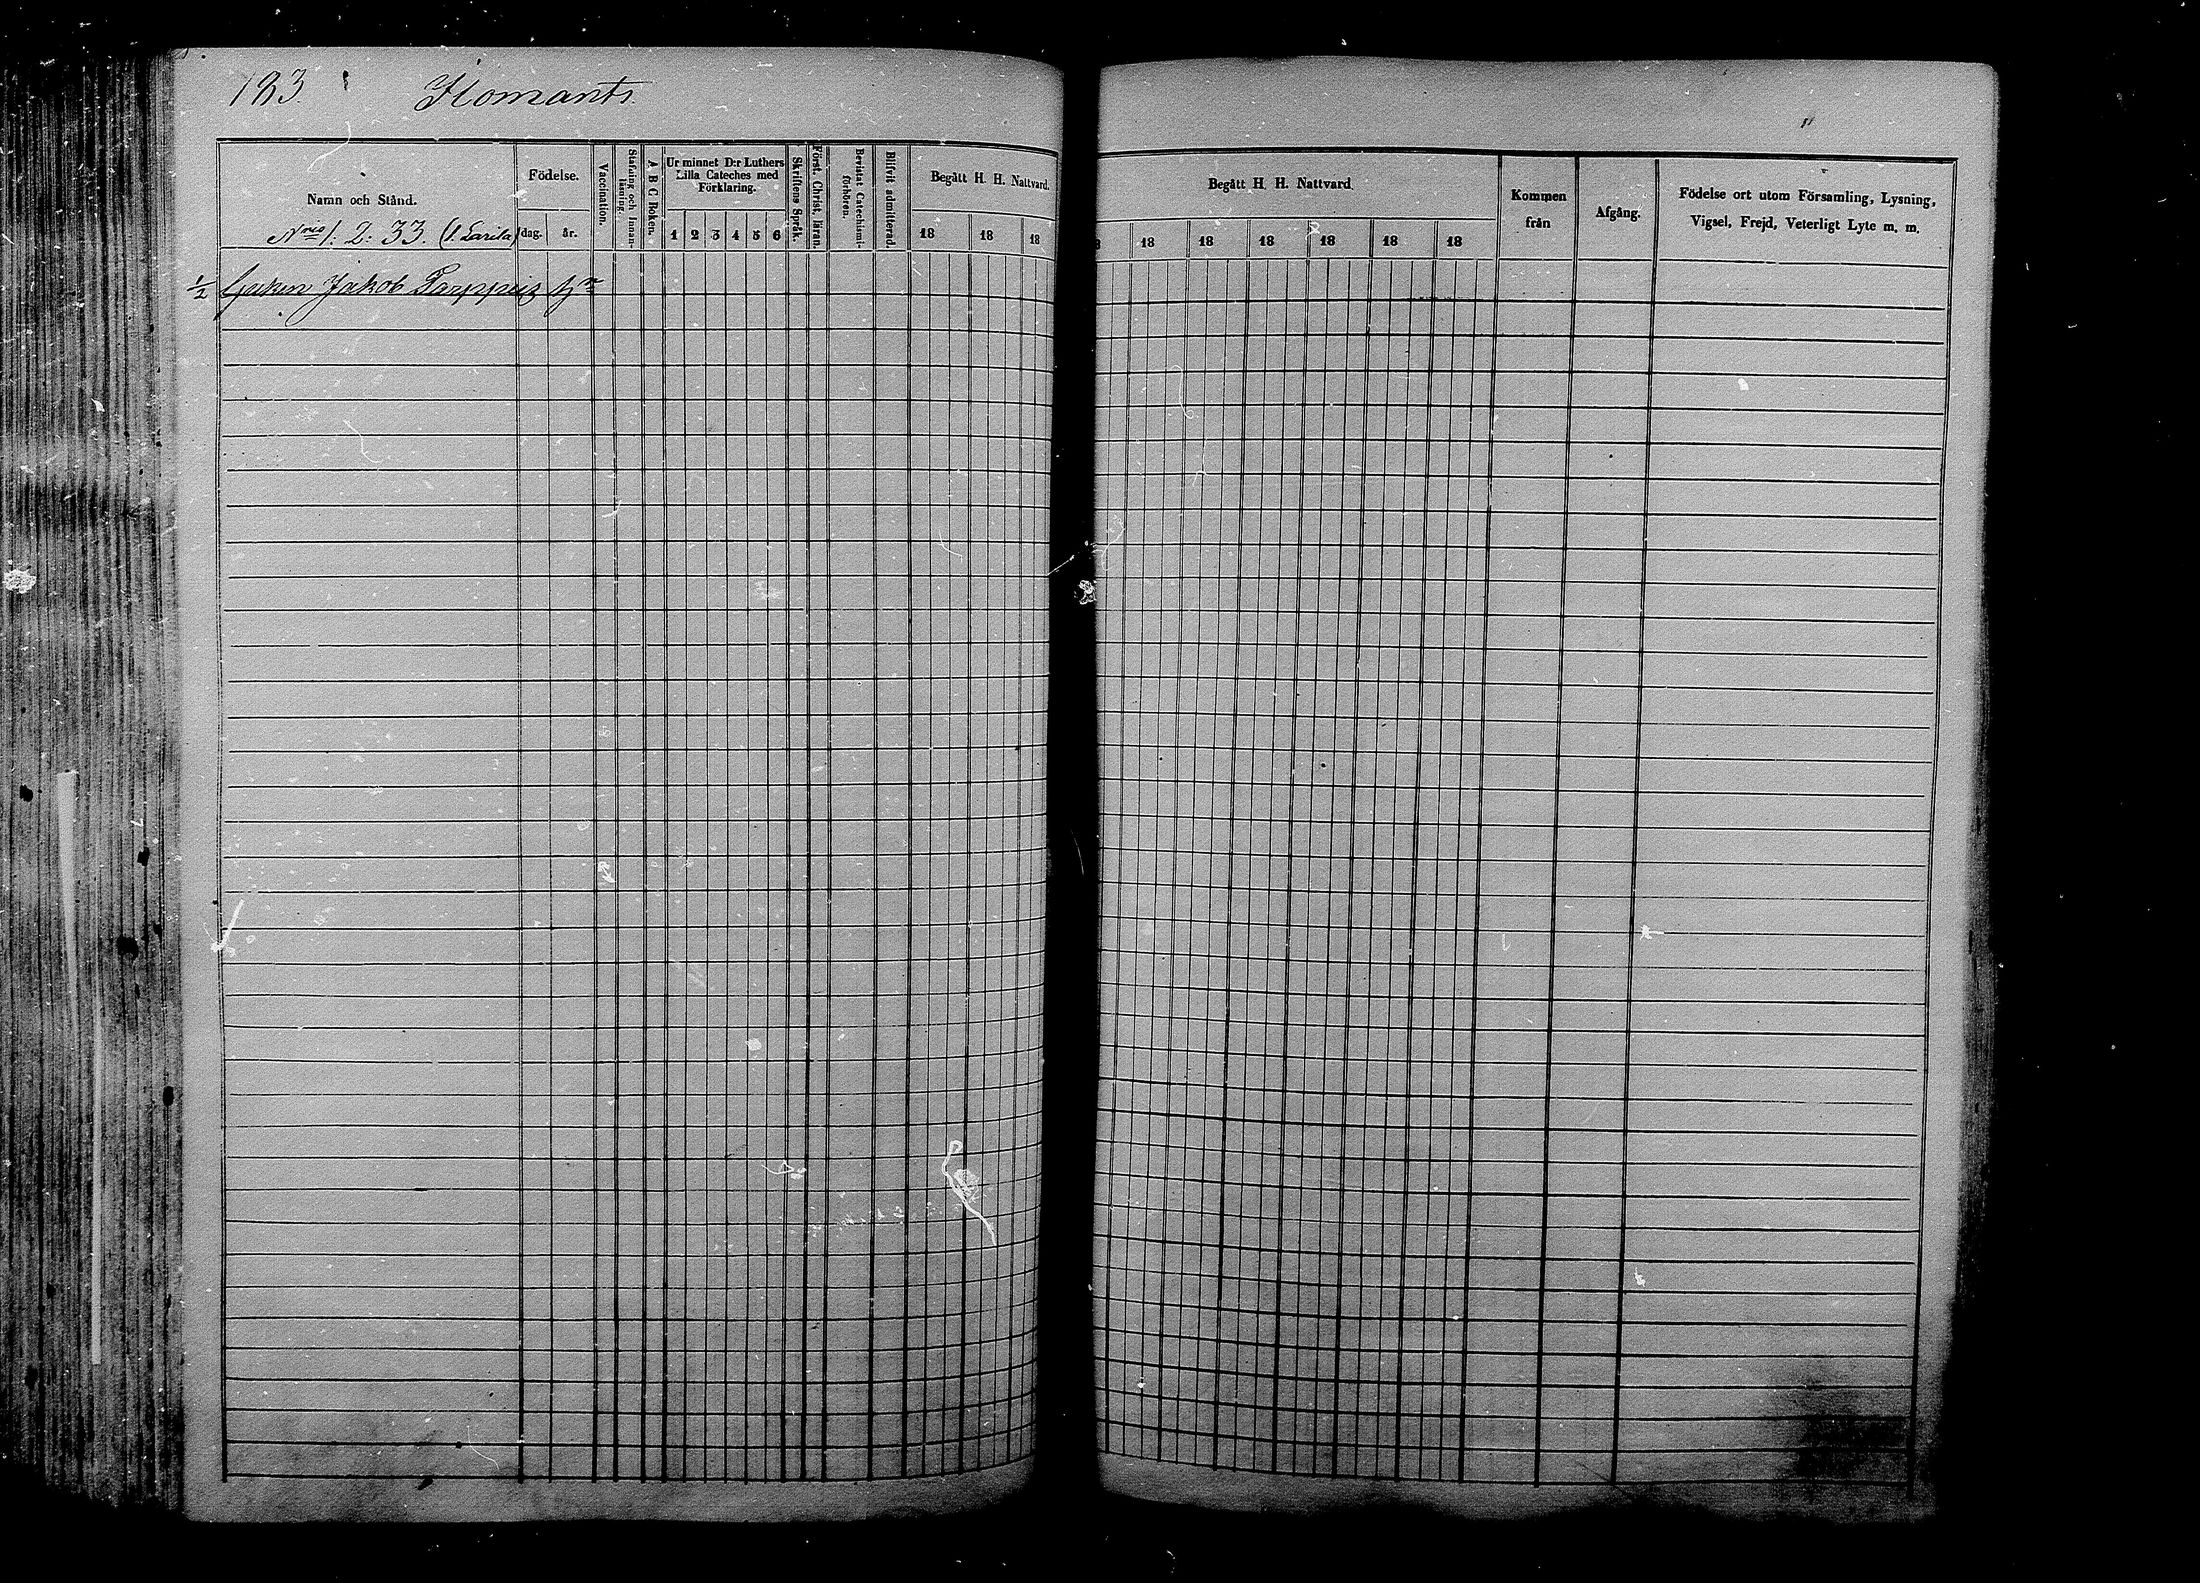 183. Ilomants.
Namn och Stånd.
N:ris 1: 2: 33. (l. Larila)
Födelse.
dag. år.
Vaccination.
Stafning och Innan-
läsning.
A B C Boken.
Ur minnet D:r Luthers
Lilla Cateches med
Förklaring.
1 2 3 4 5 6
Skriftens Språk.
Först. Christ. läran.
Bevistat Catechismi-
förhören.
Blifvit admitterad.
Begått H. H. Nattvard.
18 18 18
Begått H. H. Nattvard.
18 18 18 18 18 18
Kommen
från
Afgång.
Födelse ort utom Församling, Lysning,
Vigsel, Frejd, Veterligt Lyte m. m.
1/2 Jakob